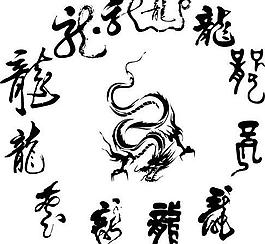 龍
龍
龍
龍
龍
龍
龍
龍
龍
龍
龍
龍